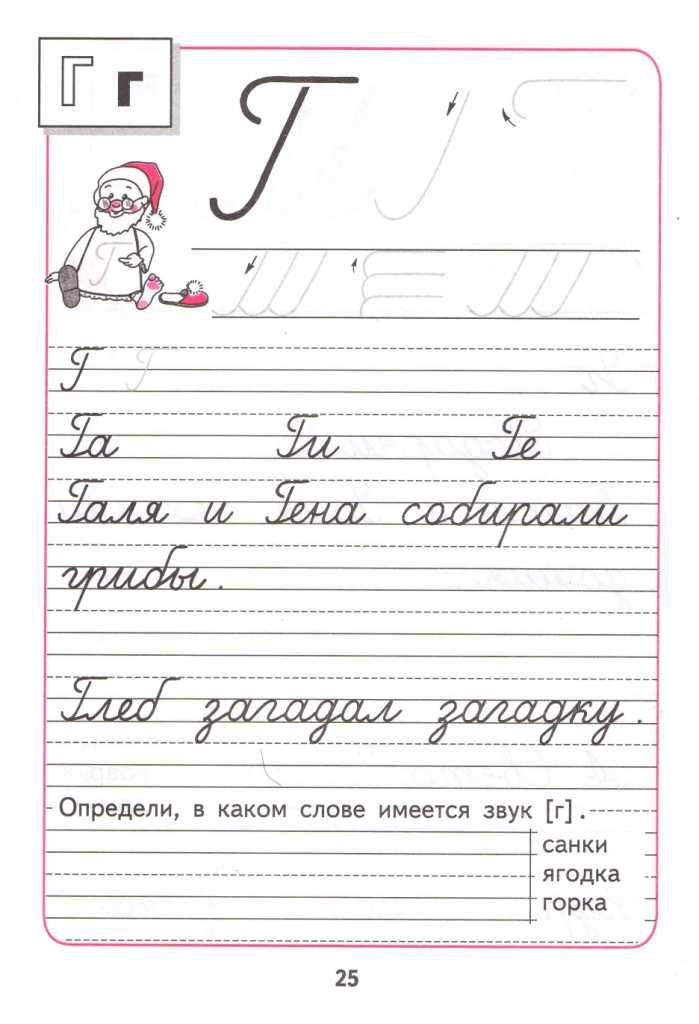 Г г
Г
Г Г
Га Ги Ге
Галя и Гена собирали
грибы.
Глеб загадал загадку.
Определи, в каком слове имеется звук [г].
санки
ягодка
горка
25